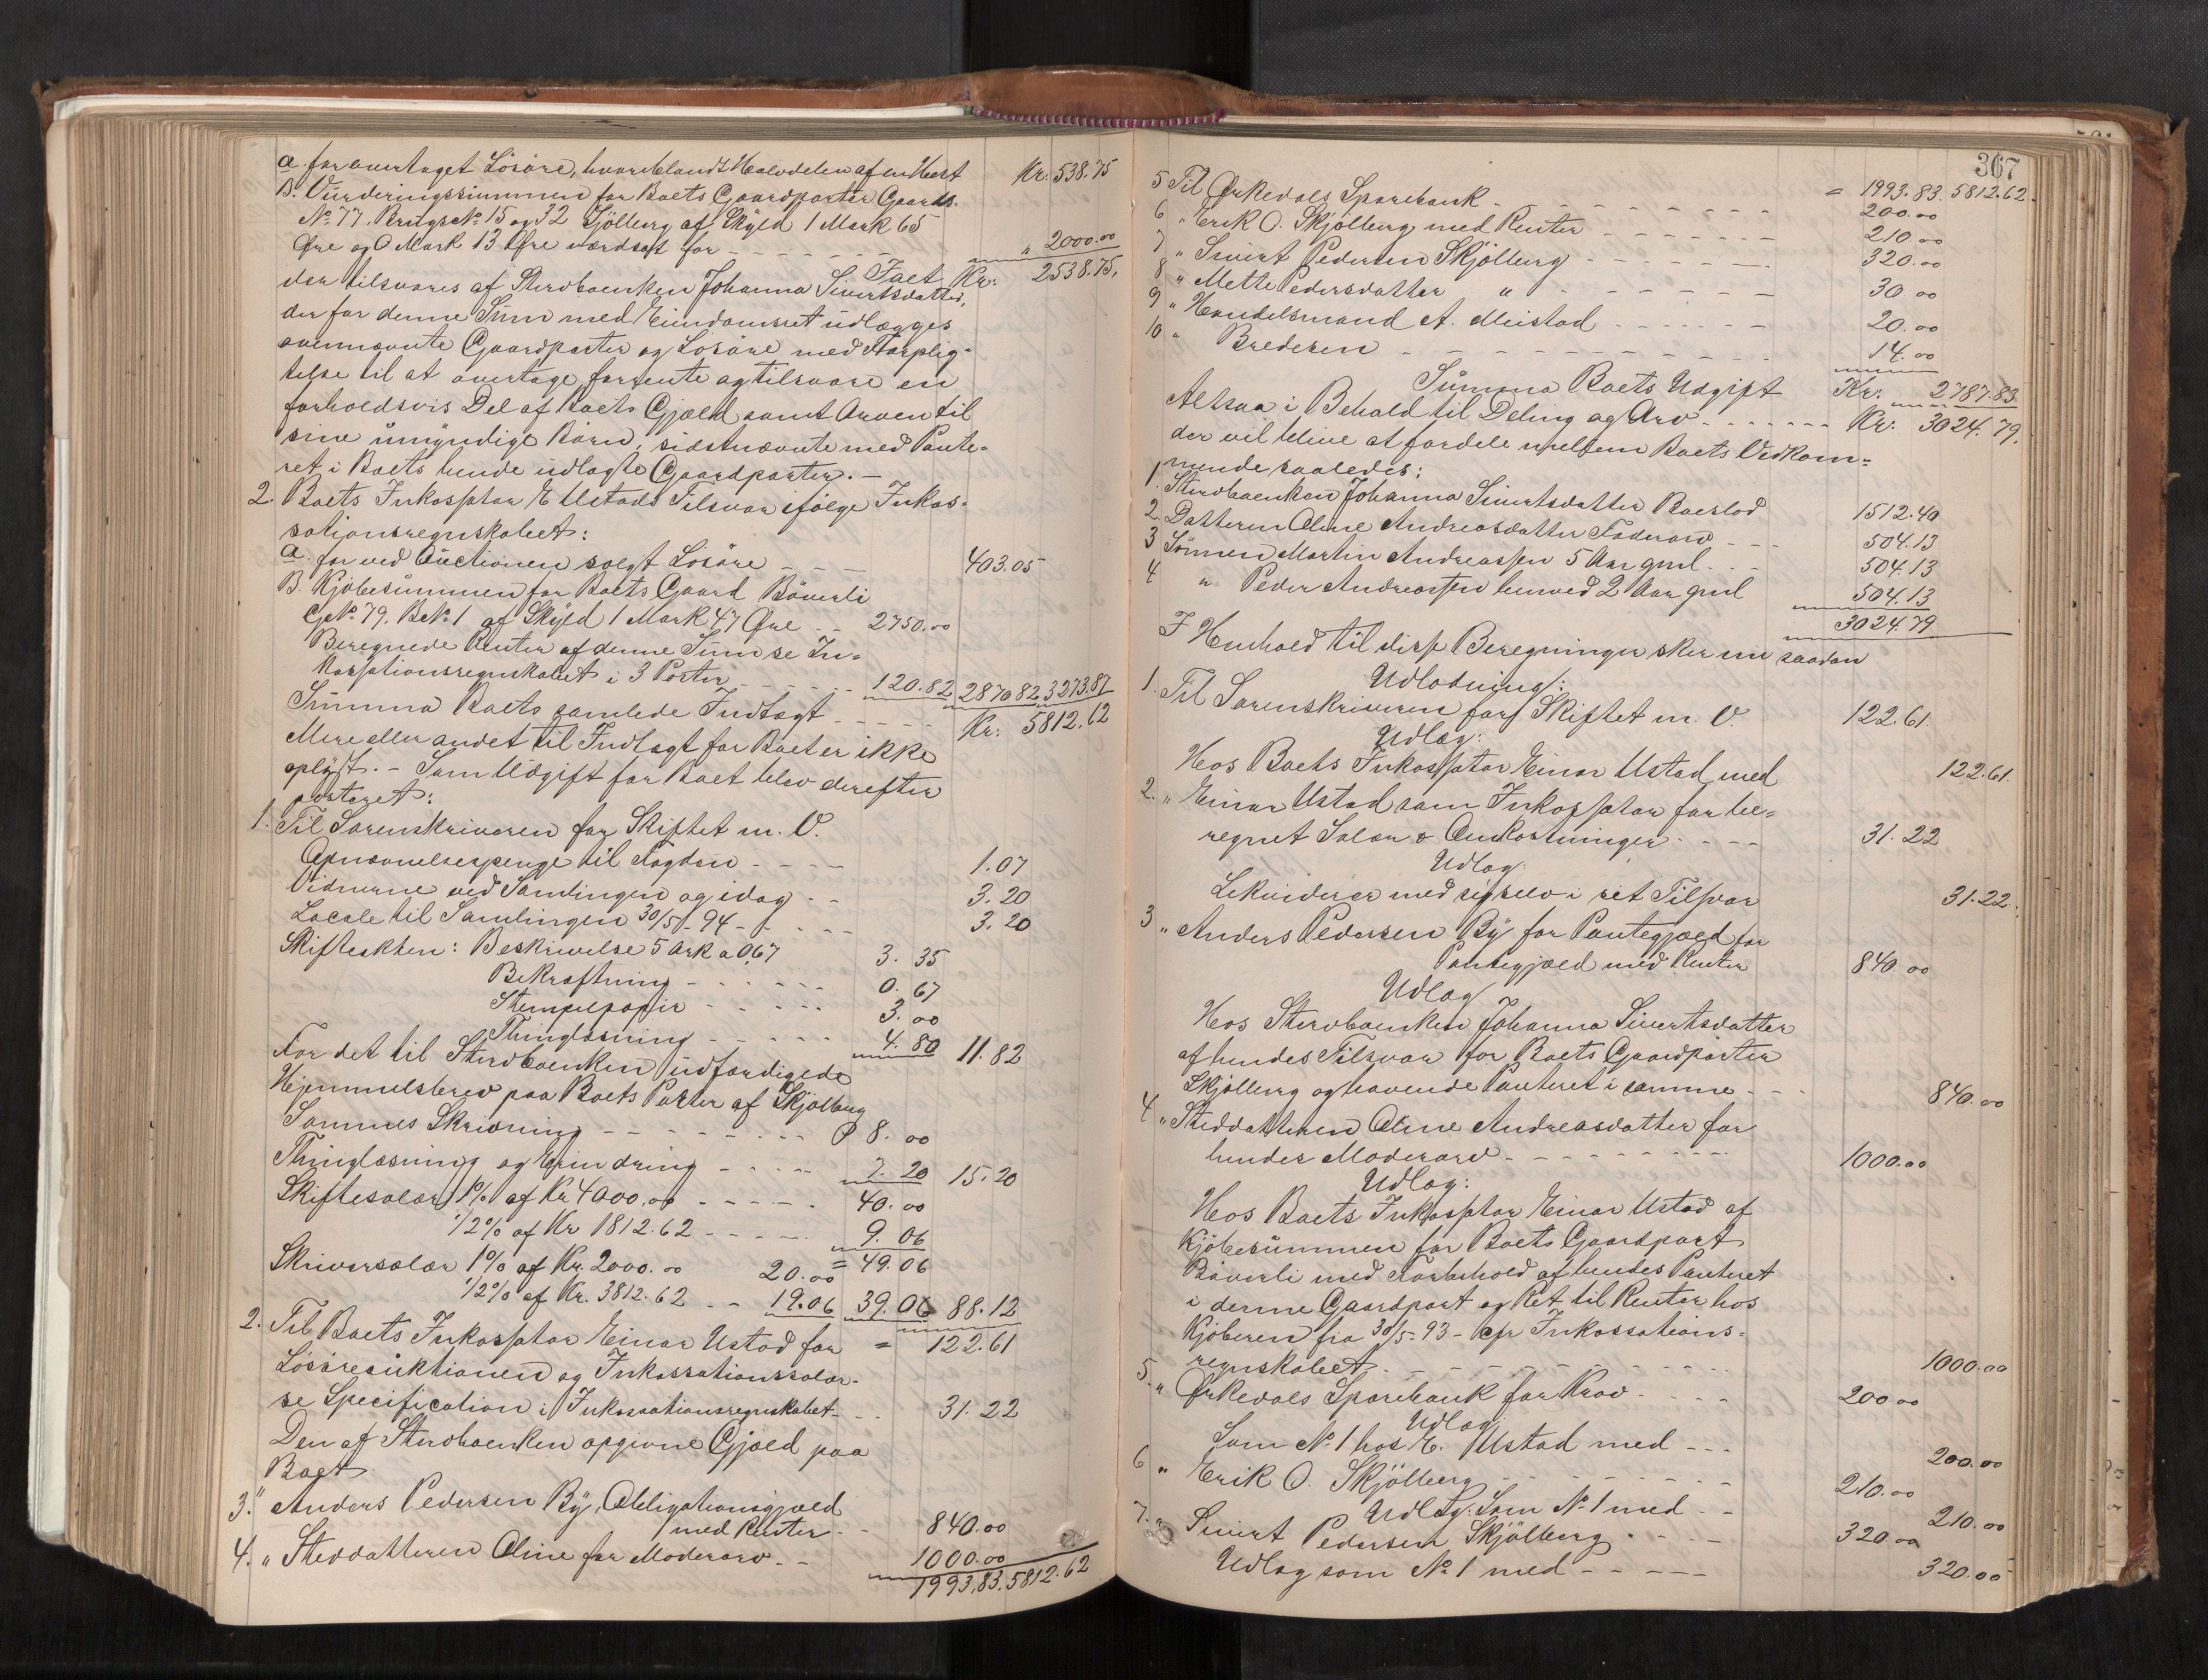 a. for overtaget Lösöre, hvoriblandt Halvdelen af en Hest Kr. 538.75
B. Vurderingssummen for Boets Gaardparter Gaards-
No. 77. Brugs No. 15 og 32 Sjölberg af Skyld 1 Mark 65
Öre og 0 Mark 13 Öre værdsat for - - - " 2000.00
Facit Kr. 2538.75.
der tilsvares af Sterboenken Johanna Sivertsdatter,
der for denne Sum med Eiendomsret udlægges
ovennævnte Gaardparter og Lösöre med Forplig-
telse til at overtage, forrente og tilsvare en
forholdsvis Del af Boets Gjæld samt Arven til
sine umyndige Börn, sidstnævnte med Pante-
ret i Boets hende udlagte Gaardparter. -
2. Boets Inkassator E Ustads Tilsvar ifölge Inkas-
sationsregnskabet:
a. for ved Auctionen solgt Lösöre - - - 403.05
B. Kjöbesummen for Boets Gaard Böverli
G.No. 79. B.No. 1 af Skyld 1 Mark 47 Öre - - 2750.00
Beregnede Renter af denne Sum se In-
kassationsregnskabet i 3 Poster - - - 120.82 2870.82 3273.87
Summa Boets samlede Indtægt - - - Kr. 5812.62
Mere eller andet til Indtægt for Boet er ikke
oplyst. - Som Udgift for Boet blev derefter
posteret:
1. Til Sorenskriveren for Skiftet m. V.
Opnævnelsespenge til Fogden - - - 1.07
Vidnerne ved Samlingen og idag - - 3.20
Locale til Samlingen 30/5 - 94 - - - 3.20
Skifteakten: Beskrivelse 5 Ark a 0,67 3.35
Bekræftning - - - 0.67
Stempelpapir - - - 3.00
Thinglæsning - - - 4.80 11.82
For det til Sterboenken udfærdigede
Hjemmelsbrev paa Boets Parter af Skjölberg
Sammes Skrivning - - - 8.00
Thinglæsning og Erindring - - - 7.20 15.20
Skiftesalær 1% af Kr 4000.00 - - - 40.00
1/2% af Kr 1812.62 - - - 9.06
= 49.06
Skriversalær 1% af Kr. 2000.00 20.00
1/2% af Kr. 3812.62 - - 19.06 39.06 88.12
2. Til Boets Inkassator Einar Ustad for = 122.61
Lösöreauktionen og Inkassationssalær-
se Specification i Inkassationsregnskabet - - 31.22
Den af Sterboenken opgivne Gjæld paa
Boet
3. " Anders Pedersen By, Obligationsgjæld
med Renter - - 840.00
4. " Steddatteren Oline for Moderarv. - - 1000.00
1993.83. 5812.62
367
= 1993.83. 5812.62.
5 Til Örkedals Sparebank - - - 200.00
6 " Erik O. Skjölberg med Renter - - - 210.00
7 " Sivert Pedersen Skjölberg - - - 320.00
8 " Mette Pedersdatter " - - - 30.00
9 " Handelsmand A. Meistad - - - 20.00
10 " Brederen - - - 14.00
Summa Boets Udgift Kr. 2787.83.
Altsaa i Behold til Deling og Arv - - - Kr. 3024.79.
der vil blive at fordele mellem Boets Vedkom-
mende saaledes:
1. Sterboenken Johanna Sivertsdatter Boeslod 1512.40
2. Datteren Oline Andreasdatter Faderarv - - - 504.13
3 Sönnen Martin Andreassen 5 Aar gml. - - 504.13
4 " Peder Andreassen henved 2 Aar gml 504.13
3024.79
I Henhold til disse Beregninger sker nu saadan
Udlodning:
1. Til Sorenskriveren for Skiftet m. V. 122.61.
Udlæg:
Hos Boets Inkassator Einar Ustad med 122.61.
2. " Einar Ustad som Inkassator for be-
regnet Salær & Omkostninger - - - 31.22
Udlæg:
Likviderer med sig selv i sit Tilsvar 31.22.
3 " Anders Pedersen By for Pantegjæld for
Pantegjæld med Renter 840.00
Udlæg
Hos Sterboenken Johanna Sivertsdatter
af hendes Tilsvar for Boets Gaardparter
Skjölberg og havende Panteret i samme - - - 840.00
4 " Steddatteren Oline Andreasdatter for
hendes Moderarv - - - 1000.00
Udlæg:
Hos Boets Inkassator Einar Ustad af
Kjöbesummen for Boets Gaardpart
Böverli med Forbehold af hendes Panteret
i denne Gaardpart og Ret til Renter hos
Kjöberen fra 30/5 - 93 - cfr Inkassations-
regnskabet - - - 1000.00
5. " Örkedals Sparebank for Krav - - - 200.00
Udlæg
Som No. 1 hos E. Ustad med - - - 200.00
6 " Erik O. Skjölberg - - - 210.00
Udlæg: Som No. 1 med - - 210.00
7. " Sivert Pedersen Skjölberg - - - 320.00
Udlæg som No. 1 med - - - 320.00